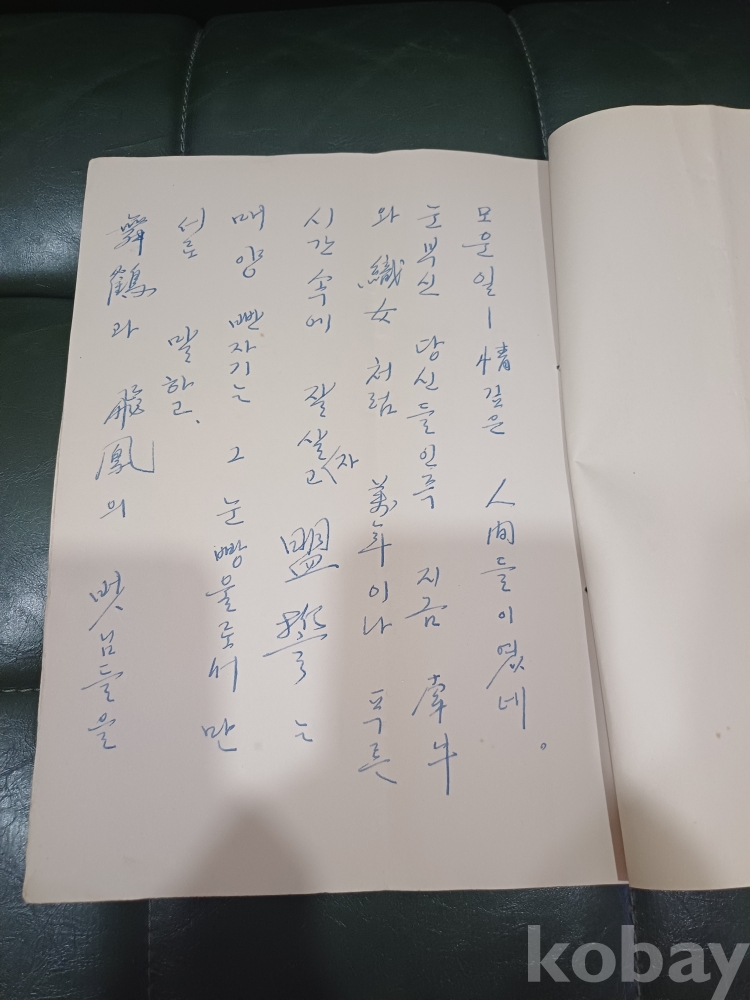 모운일ㅣ情깊은 人間들이였네。
눈부신 당신들인즉 지금 牽牛
와 織女 처럼 萬年이나 푸른
시간 속에 잘살고(자 盟誓는
매양 빤자기는 그 눈빵울로서만
서로 말하고、
舞鶴과 飛鳳의 벗님들을
kobay